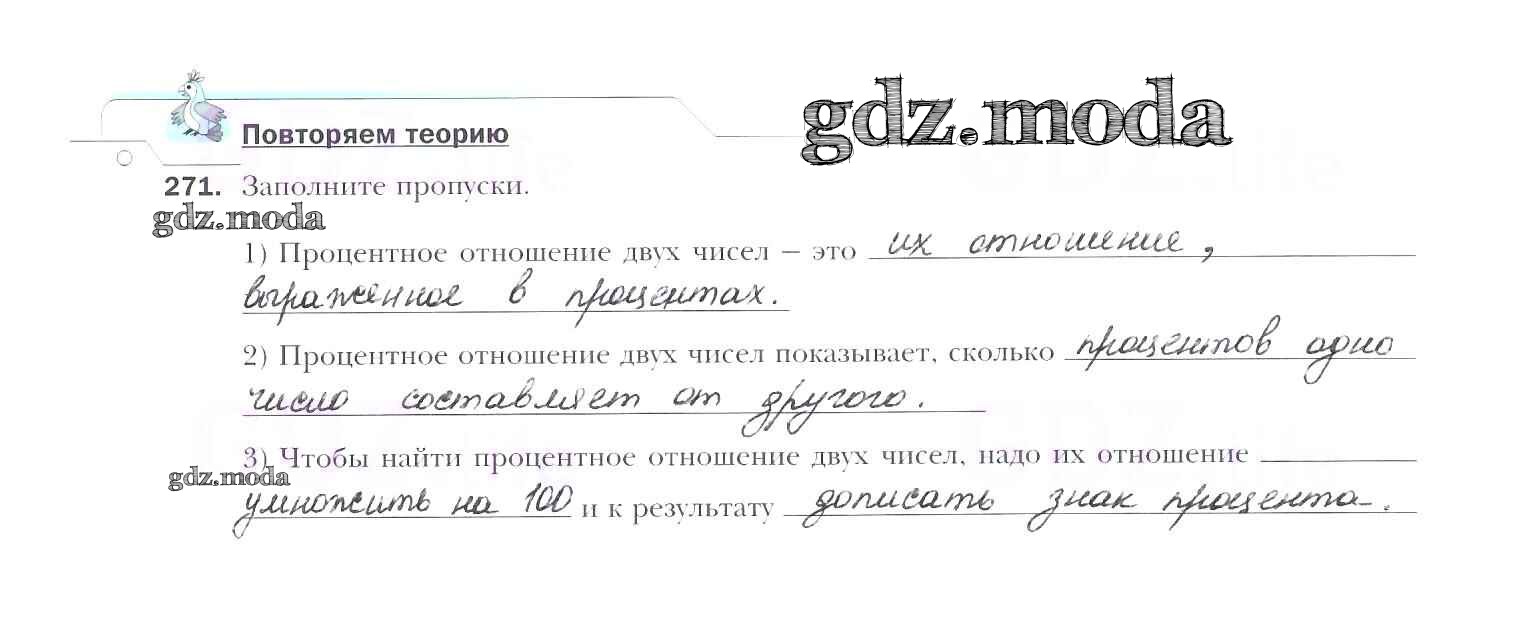 gdz.moda
Повторяем теорию
271. Заполните пропуски.
gdz.moda
1) Процентное отношение двух чисел – это их отношение,
выраженное в процентах.
2) Процентное отношение двух чисел показывает, сколько процентов одно
число составляет от другого.
3) Чтобы найти процентное отношение двух чисел, надо их отношение
gdz.moda
умножить на 100 и к результату дописать знак процента.